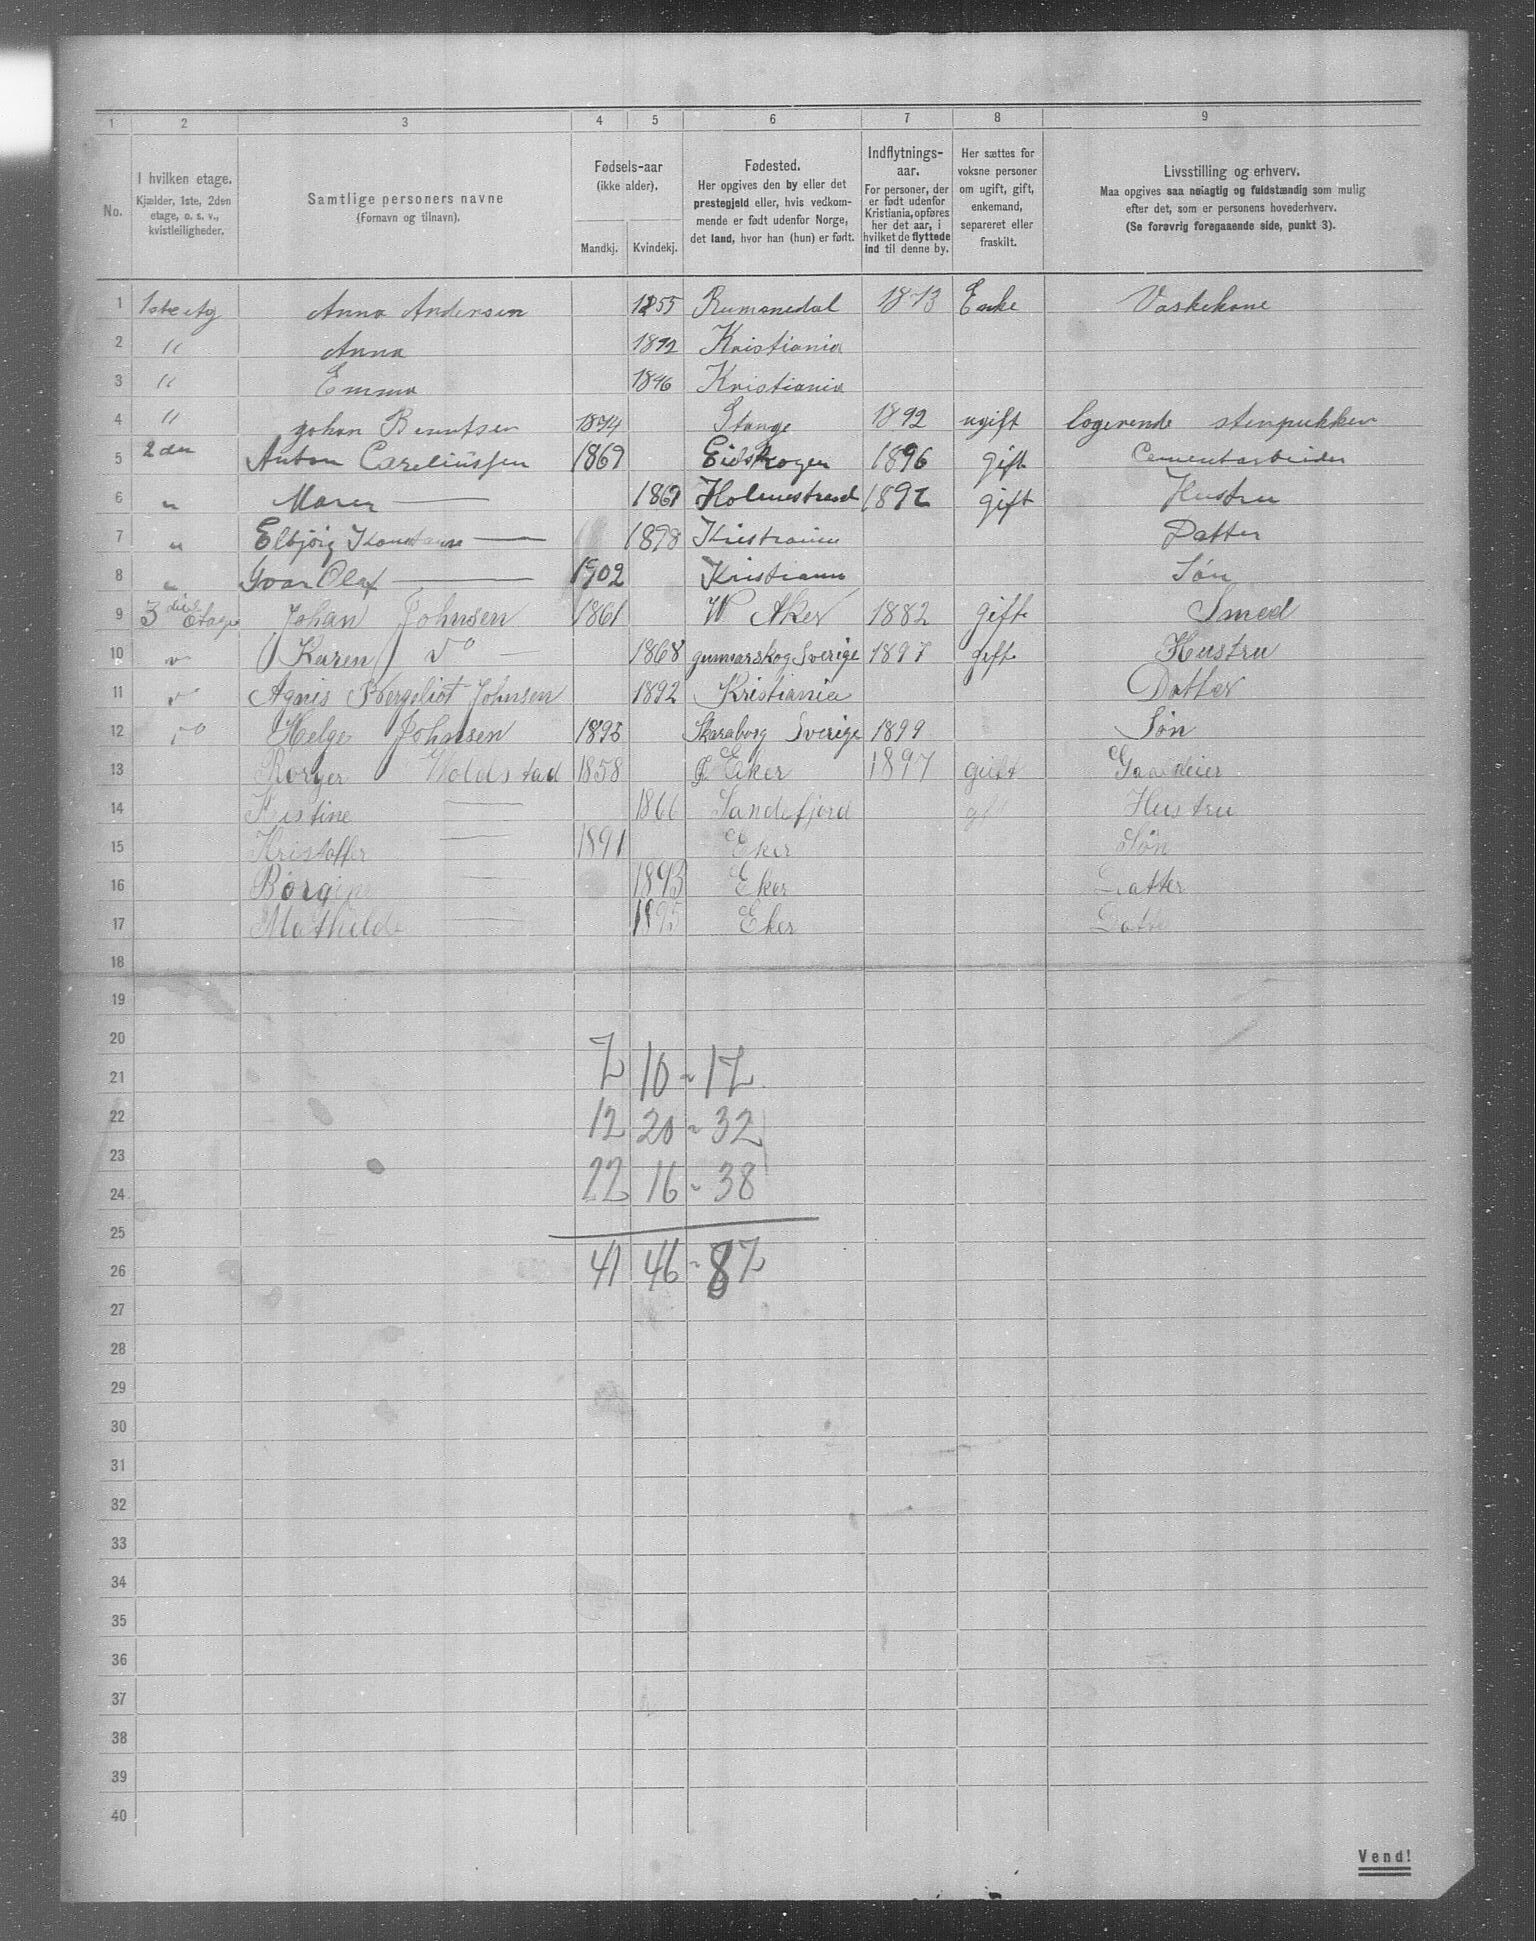 1 2 3 4 5 6 7 8 9
No.
I hvilken etage.
Kjælder, 1ste, 2den
etage, o. s. v.,
kvistleiligheder.
Samtlige personers navne
(Fornavn og tilnavn).
Fødsels-aar
(ikke alder).
Mandkj. Kvindekj.
Fødested.
Her opgives den by eller det
prestegjeld eller, hvis vedkom-
mende er født udenfor Norge,
det land, hvor han (hun) er født.
Indflytnings-
aar.
For personer, der
er født udenfor
Kristiania, opføres
her det aar, i
hvilket de flyttede
ind til denne by.
Her sættes for
voksne personer
om ugift, gift,
enkemand,
separeret eller
fraskilt.
Livsstilling og erhverv.
Maa opgives saa nøiagtig og fuldstændig som mulig
efter det, som er personens hovederhverv.
(Se forøvrig foregaaende side, punkt 3).
1 1ste Ag Anna Andersen 1855 Rumsnedal 1873 Enke Vaskekone
2 " Anna 1892 Kristiania
3 " Emma 1896 Kristiania
4 " Johan Berntsen 1874 Stange 1892 ugift logerende stenpukker
5 2den Anton Careliussen 1869 Eidskogen 1896 gift Cementarbeider
6 " Maren — 1869 Holmestrand 1892 gift Hustru
7 " Elbjørg — 1898 Kristiania Datter
8 " Ivar Olaf — 1902 Kristiania Søn
9 3die Etage Johan Johnsen 1861 V Aker 1882 gift Smed
10 " Karen do — 1868 gunnarskog Sverige 1897 gift Hustru
11 " Agnis Bergeliot Johnsen 1892 Kristiania Datter
12 do Helge Johnsen 1895 Skaraborg Sverige 1899 Søn
13 Børger Holdstad 1858 Ø Eker 1897 gift Gaardeier
14 Kristine — 1866 Sandefjord gift Hustru
15 Kristoffer — 1891 Eker Søn
16 Børgine — 1893 Eker Datter
17 Mathilde — 1895 Eker Datter
18
19
20
7 10 - 17
21
22
12 20 - 32
23
22 16 - 38
24
25
41 46 - 87
26
27
28
29
30
31
32
33
34
35
36
37
38
39
40
Vend!